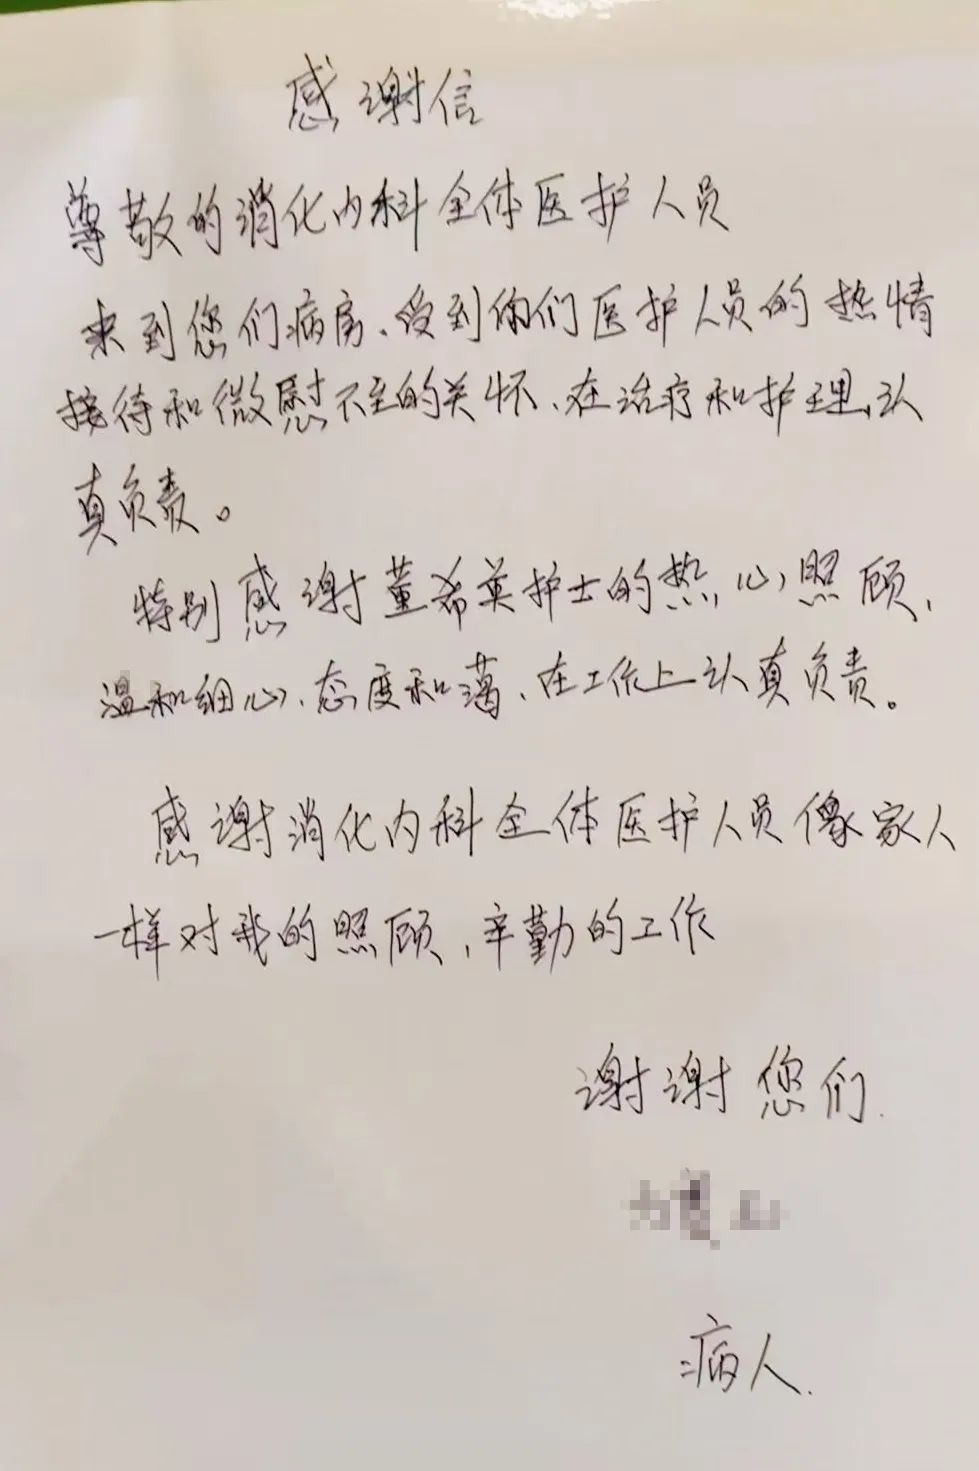 感谢信
尊敬的消化内科全体医护人员
来到您们病房、受到你们医护人员的热情
接待和微慰不至的关怀、在治疗和护理认
真负责。
特别感谢董希英护士的热心照顾、
温和细心、态度和蔼、在工作上认真负责。
感谢消化内科全体医护人员像家人
一样对我的照顾,辛勤的工作
谢谢您们.
病人.